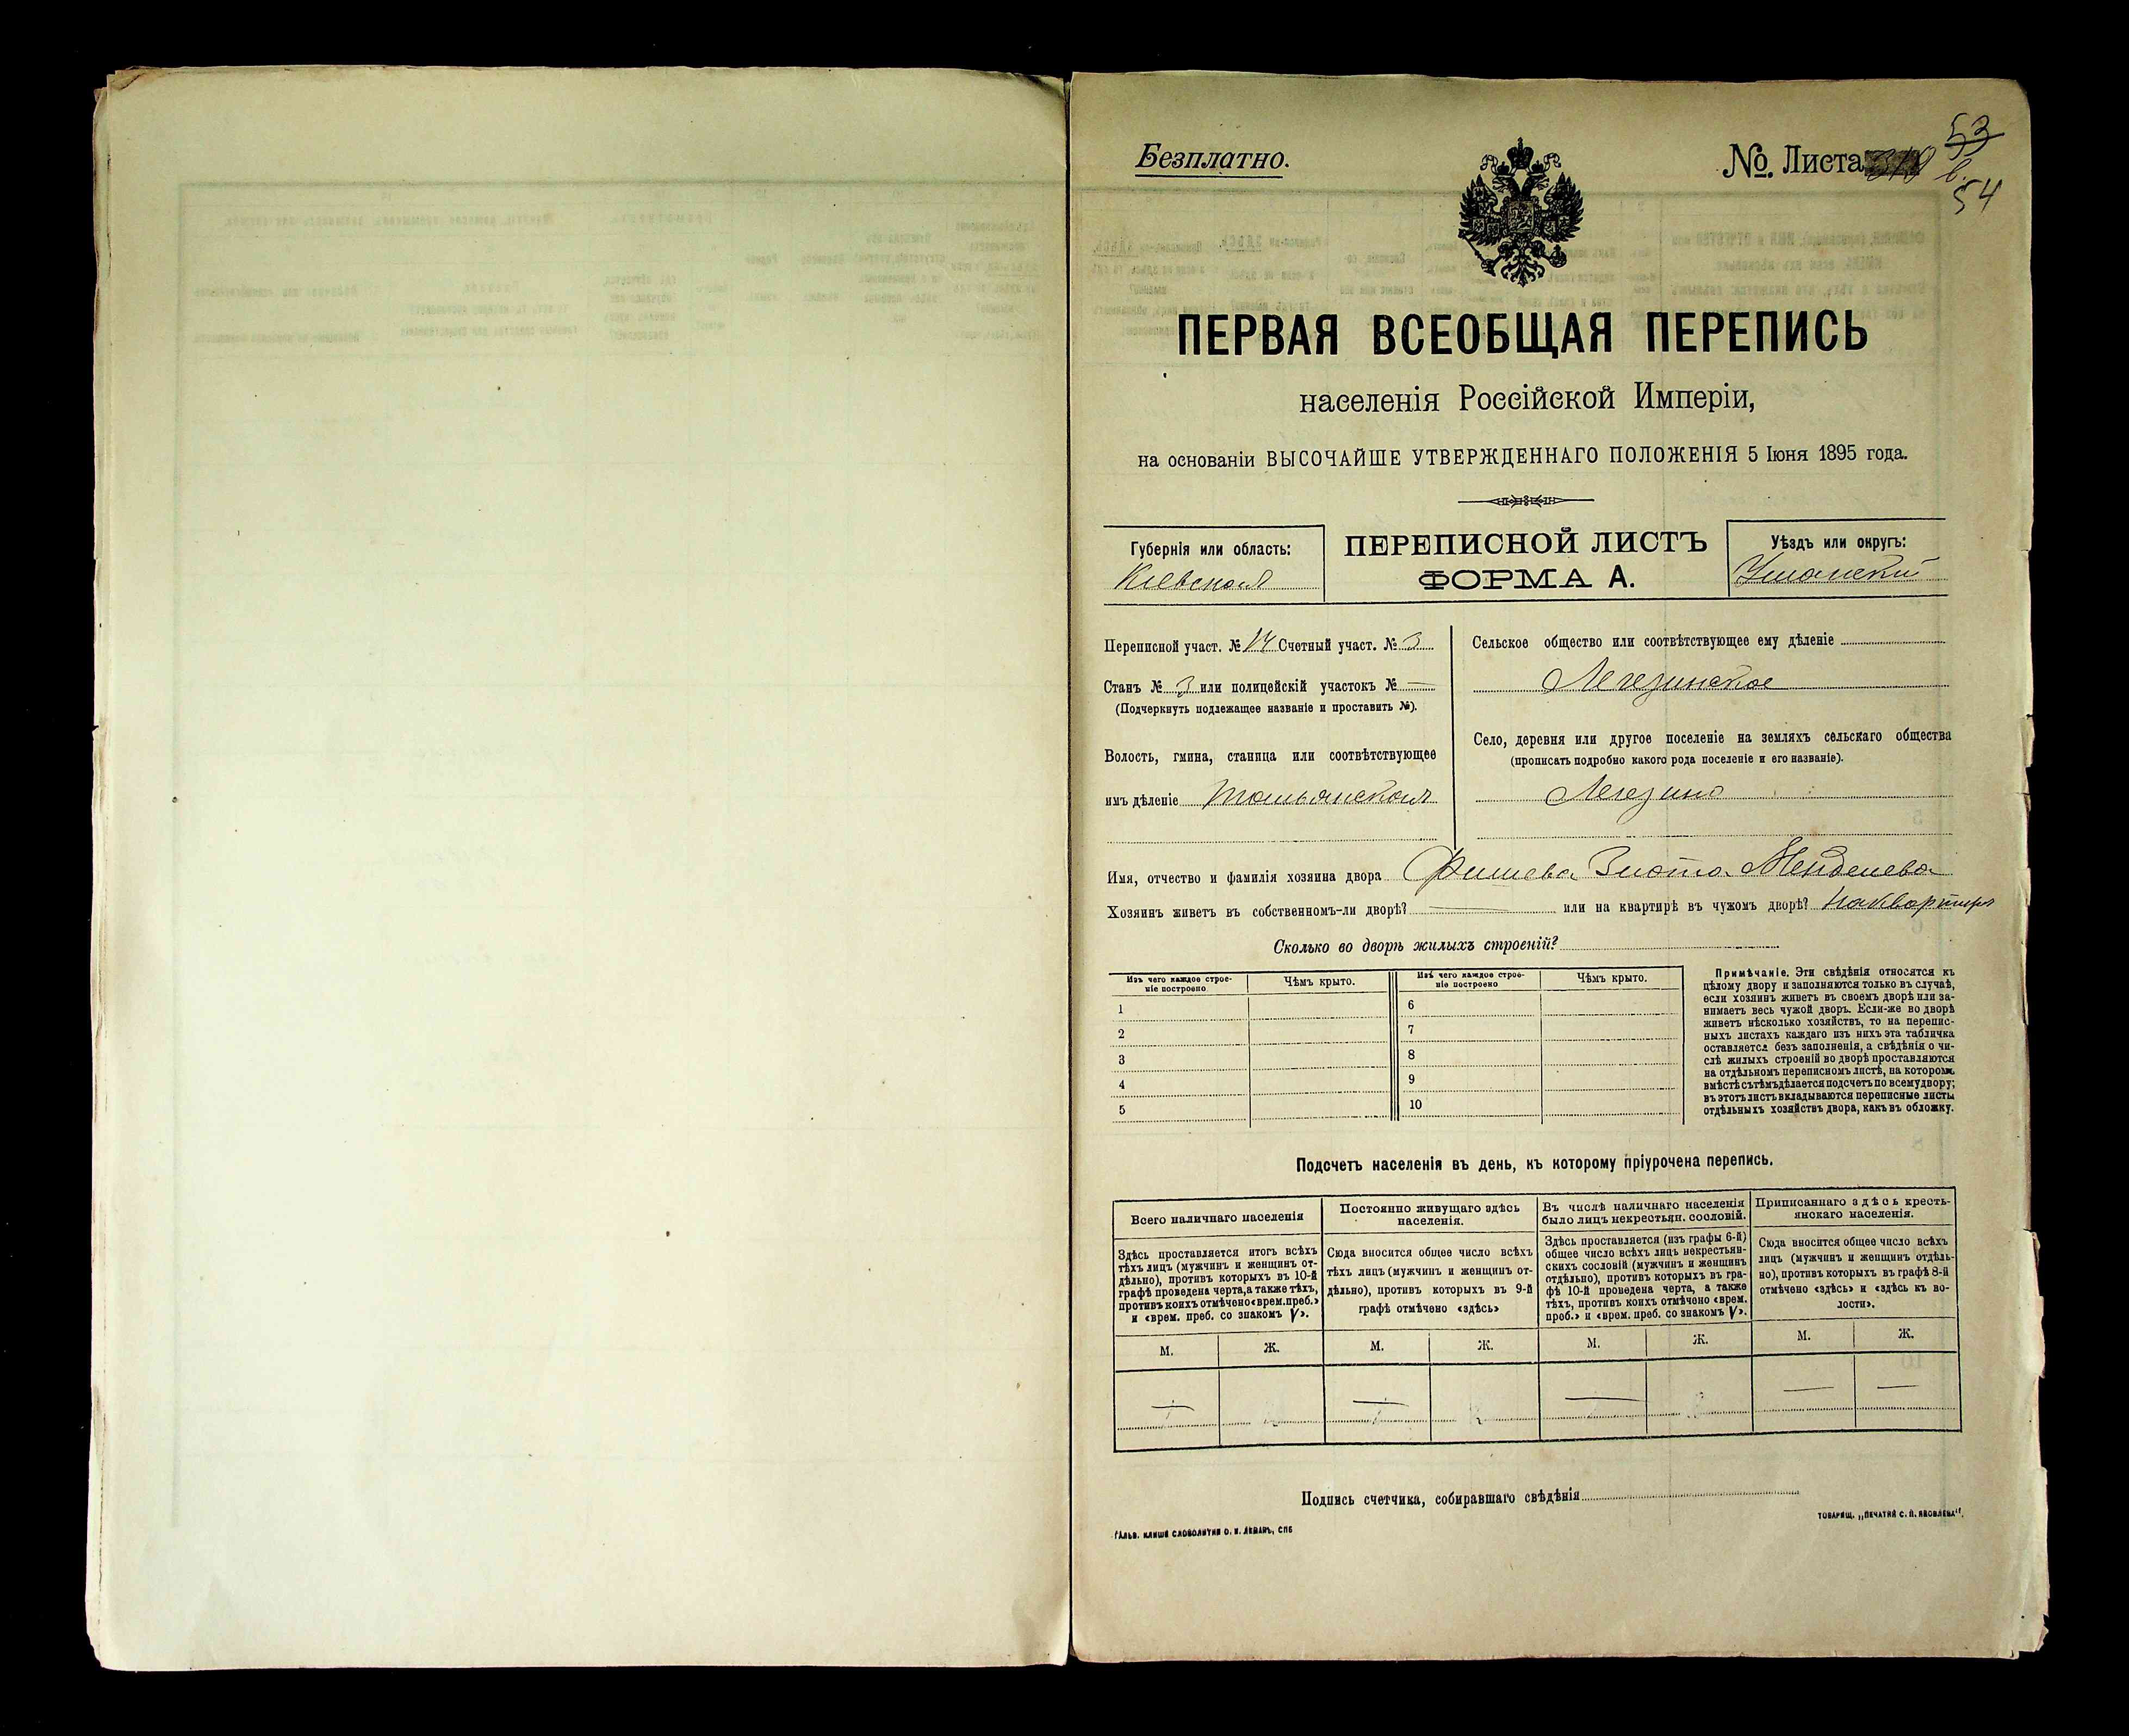 Безплатно.
№. Листа
53
54
ПЕРВАЯ ВСЕОБЩАЯ ПЕРЕПИСЬ
населенія Россійской Имперіи,
на основаніи ВЫСОЧАЙШЕ УТВЕРЖДЕННАГО ПОЛОЖЕНІЯ 5 Іюня 1895 года.
Губернія или область:
Кіевская
ПЕРЕПИСНОЙ ЛИСТЪ
ФОРМА А.
Уѣздъ или округъ:
Уманскій
Переписной участ. № 14 Счетный участ. № 3
Станъ № 3 или полицейскій участокъ № —
(Подчеркнуть подлежащее названіе и проставить №).
Волость, гмина, станица или соотвѣтствующее
имъ дѣленіе Тальянская
Сельское общество или соотвѣтствующее ему дѣленіе
Легезинское
Село, деревня или другое поселеніе на земляхъ сельскаго общества
(прописать подробно какого рода поселеніе и его названіе).
Легезино
Имя, отчество и фамилія хозяина двора Фишева Злота Менделева
Хозяинъ живетъ въ собственномъ-ли дворѣ? — или на квартирѣ въ чужомъ дворѣ? На квартирѣ
Сколько во дворѣ жилыхъ строеній?
Изъ чего каждое строе-
ніе построено
Чѣмъ крыто.
Изъ чего каждое строе-
ніе построено
Чѣмъ крыто.
1
2
3
4
5
6
7
8
9
10
Примѣчаніе. Эти свѣдѣнія относятся къ
цѣлому двору и заполняются только въ случаѣ,
если хозяинъ живетъ въ своемъ дворѣ или за-
нимаетъ весь чужой дворъ. Если-же во дворѣ
живетъ нѣсколько хозяйствъ, то на перепис-
ныхъ листахъ каждаго изъ нихъ эта табличка
оставляется безъ заполненія, а свѣдѣнія о чи-
слѣ жилыхъ строеній во дворѣ проставляются
на отдѣльномъ переписномъ листѣ, на которомъ
вмѣстѣ съ тѣмъ дѣлается подсчетъ по всему двору;
въ этотъ листъ вкладываются переписные листы
отдѣльныхъ хозяйствъ двора, какъ въ обложку.
Подсчетъ населенія въ день, къ которому пріурочена перепись.
Всего наличнаго населенія
Здѣсь проставляется итогъ всѣхъ
тѣхъ лицъ (мужчинъ и женщинъ от-
дѣльно), противъ которыхъ въ 10-й
графѣ проведена черта, а также тѣхъ,
противъ коихъ отмѣчено «врем. преб.»
и «врем. преб. со знакомъ V».
Постоянно живущаго здѣсь
населенія.
Сюда вносится общее число всѣхъ
тѣхъ лицъ (мужчинъ и женщинъ от-
дѣльно), противъ которыхъ въ 9-й
графѣ отмѣчено «здѣсь»
Въ числѣ наличнаго населенія
было лицъ некрестьян. сословій.
Здѣсь проставляется (изъ графы 6-й)
общее число всѣхъ лицъ некрестьян-
скихъ сословій (мужчинъ и женщинъ
отдѣльно), противъ которыхъ въ гра-
фѣ 10-й проведена черта, а также
тѣхъ, противъ коихъ отмѣчено «врем.
преб.» и «врем. преб. со знакомъ V».
Приписаннаго здѣсь кресть-
янскаго населенія.
Сюда вносится общее число всѣхъ
лицъ (мужчинъ и женщинъ отдѣль-
но), противъ которыхъ въ графѣ 8-й
отмѣчено «здѣсь» и «здѣсь къ во-
лости».
М. Ж. М. Ж. М. Ж. М. Ж.
Подпись счетчика, собиравшаго свѣдѣнія
Гальв. клише словолитни О. И. Леманъ, СПБ
Товарищ. „Печатня С. П. Яковлева".